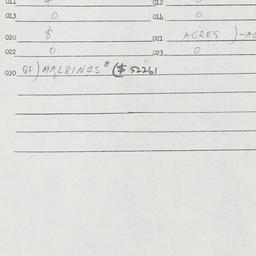 011 012
013 0 014 0
020 $ 021 AGRES )-AG
022 0 023 0
030 QF) MALBINDS * ($ 52261